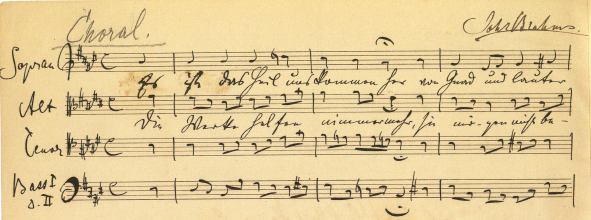 Choral.
Joh. Brahms.
Sopran
Es ist das Heil uns kommen her von Gnad und lauter
Alt
Die Werke helfen nimmermehr, sie mögen nicht be-
Tenor
Bass I
u. II